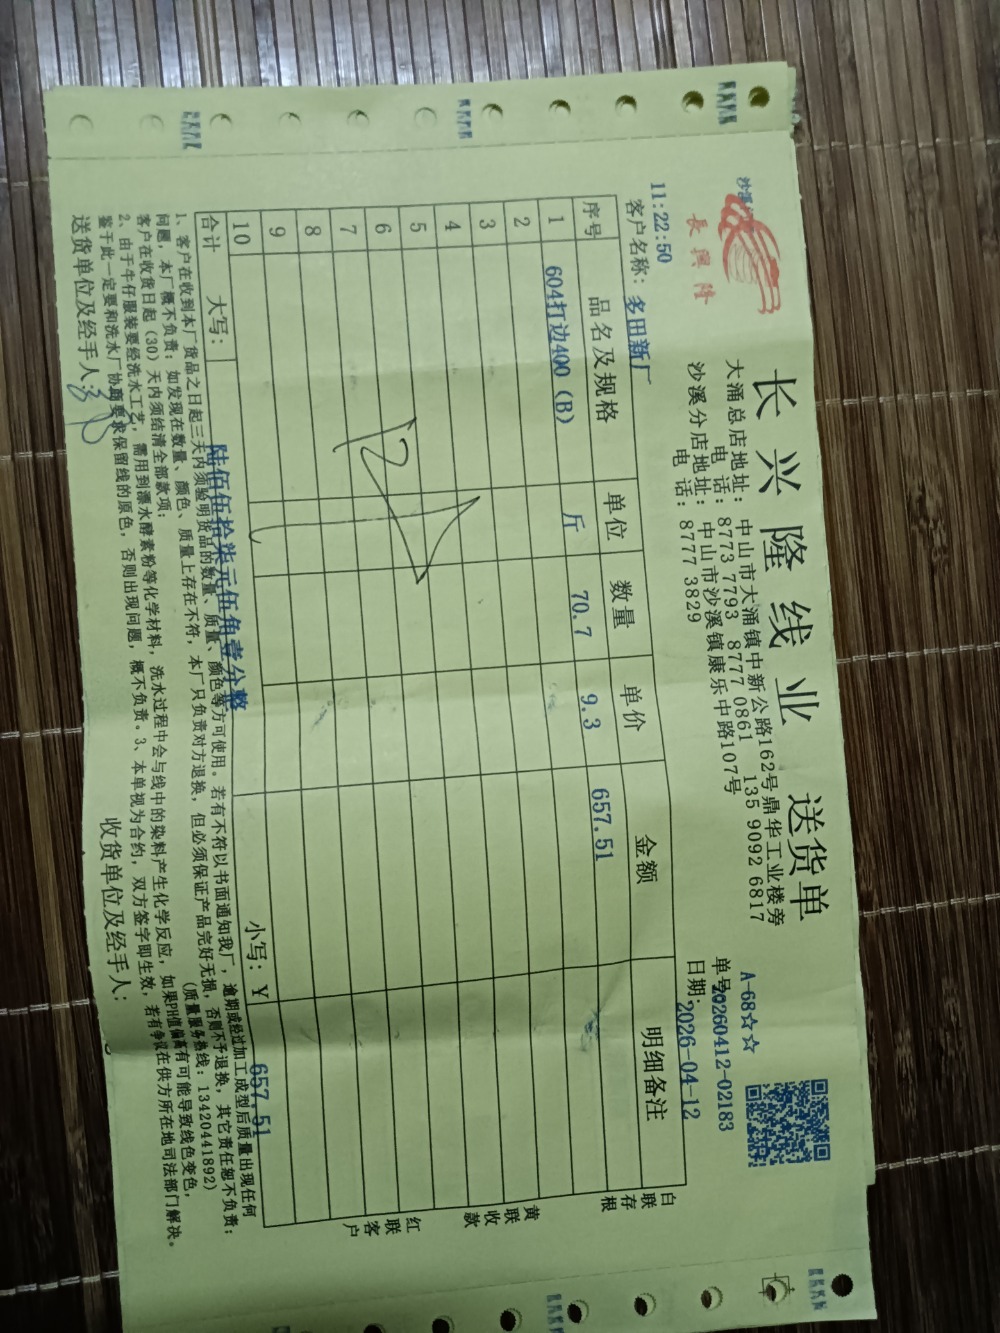 長興隆
长兴隆线业 送货单
大涌总店地址：中山市大涌镇中新公路162号鼎华工业楼旁
电话：8773 7793 8777 0861 135 9092 6817
沙溪分店地址：中山市沙溪镇康乐中路107号
电话：8777 3829
A-68☆☆
单号：20260412-02183
日期：2026-04-12
11:22:50
客户名称：多田新厂
序号 品名及规格 单位 数量 单价 金额 明细备注
1 604打边400（B） 斤 70.7 9.3 657.51
2
3
4
5
6
7
8
9
10
合计 大写：陆佰伍拾柒元伍角壹分整 小写：Y 657.51
白联存根
黄联收款
红联客户
1、客户在收到本厂货品之日起三天内须验明货品的数量、质量、颜色等方可使用。若有不符以书面通知我厂，逾期或经过加工成型后质量出现任何
问题，本厂概不负责；如发现在数量、颜色、质量上存在不符，本厂只负责对方退换，但必须保证产品完好无损，否则不予退换，其它责任恕不负责；
客户在收货日起（30）天内须结清全部款项； （质量服务热线：13420441892）
2、由于牛仔服装要经洗水工艺，需用到漂水酵素粉等化学材料，洗水过程中会与线中的染料产生化学反应，如果PH值偏高有可能导致线色变色，
鉴于此一定要和洗水厂协商要求保留线的原色，否则出现问题，概不负责。3、本单视为合约，双方签字即生效，若有争议在供方所在地司法部门解决。
送货单位及经手人： 收货单位及经手人：